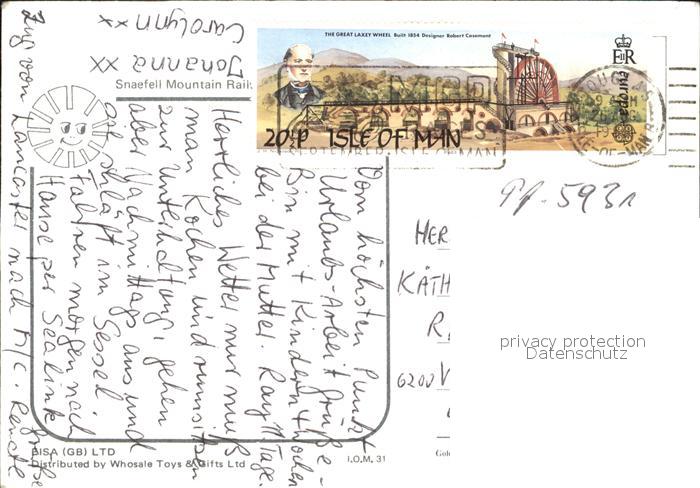 THE GREAT LAXEY WHEEL Built 1854 Designer Robert Casement
20½P ISLE OF MAN
europa
SEPTEMBER ISLE OF MAN
Snaefell Mountain Rail
Vom höchsten Punkt
Urlaubs-Arbeit Grüße -
Bin mit Kindern 4 Wochen
bei der Mutter. Ray 11 Tage.
Herrliches Wetter nur muß
man Kochen und rumsitzen
zur Unterhaltung, gehen
aber Nachmittags aus und
schläft im Sessel
Fahren morgen nach
Hause per Sealink
Zug von Lancaster nach M/C.
Johanna xx
Carolynn xx
Pf. 5931
HER
KÄTH
6200
privacy protection
Datenschutz
BISA (GB) LTD
Distributed by Whosale Toys & Gifts Ltd
I.O.M. 31